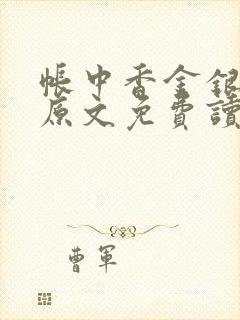 帳中香金銀
原文免費讀
曹軍